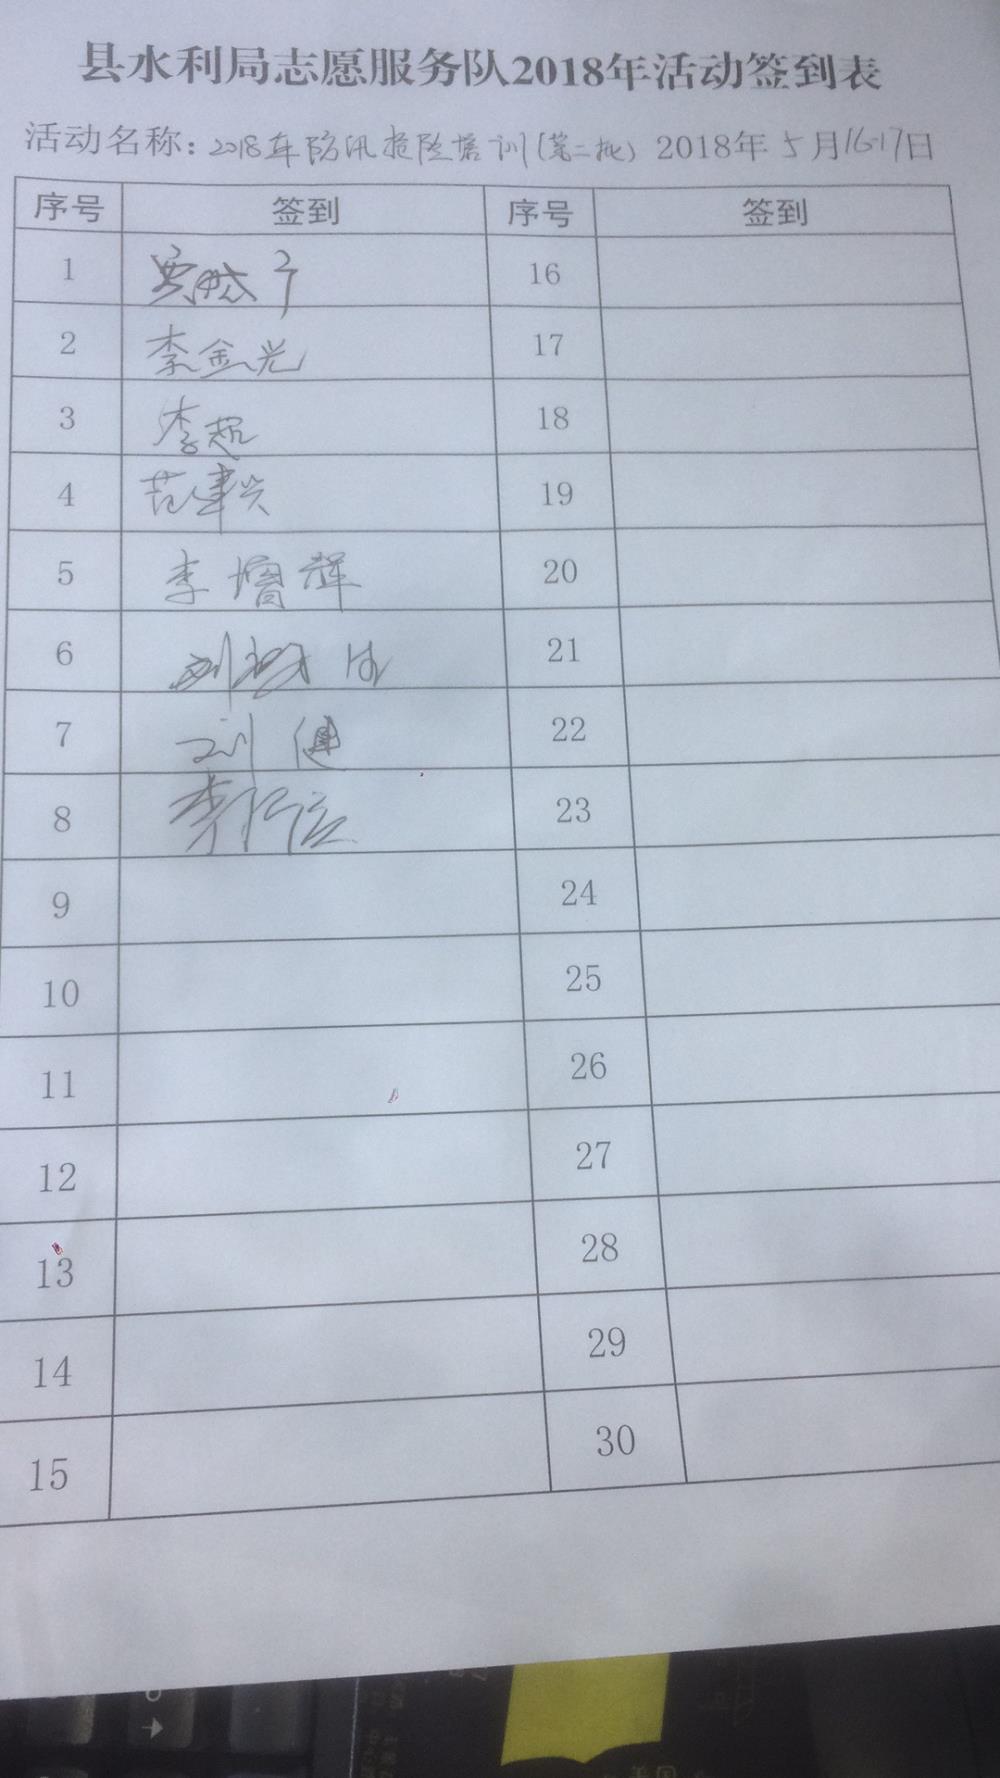 县水利局志愿服务队2018年活动签到表
活动名称：2018年防汛抢险培训(第二批) 2018年5月16-17日
序号 签到 序号 签到
1 16
2 李金光 17
3 李超 18
4 范肇兴 19
5 李增辉 20
6 刘 21
7 刘健 22
8 李 23
9 24
10 25
11 26
12 27
13 28
14 29
15 30